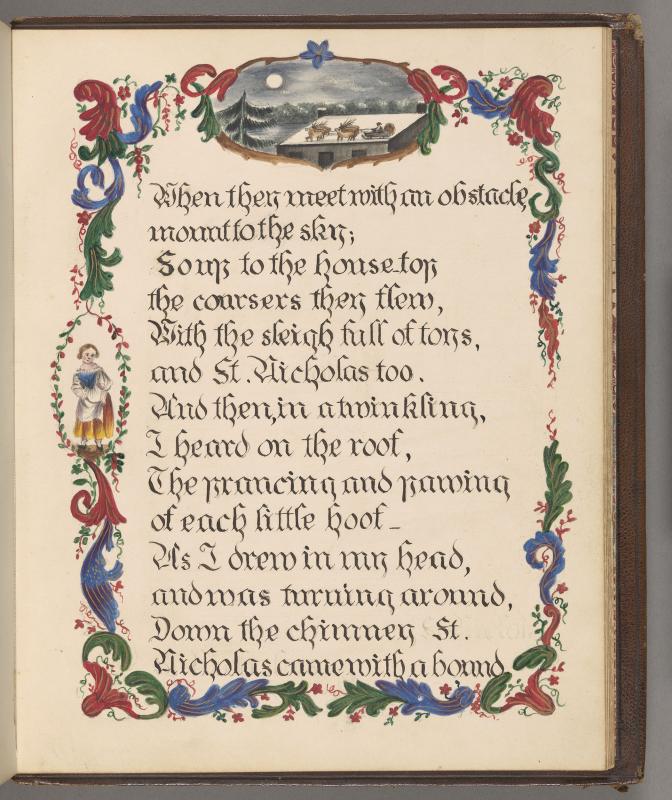 When they meet with an obstacle,
mount to the sky;
So up to the house-top
the coursers they flew,
With the sleigh full of toys,
and St. Nicholas too.
And then, in a twinkling,
I heard on the roof,
The prancing and pawing
of each little hoof_
As I drew in my head,
and was turning around,
Down the chimney St.
Nicholas came with a bound